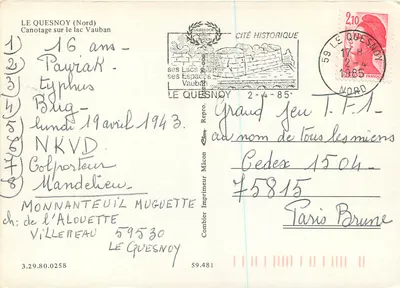 LE QUESNOY (Nord)
Canotage sur le lac Vauban
1) 16 ans-
2) Payrak-
3) typhus
4) Bug-
5) lundi 19 avril 1943.
6) NKVD.
7) Colporteur
8) Mandelieu-
MONNANTEUIL MUGUETTE
ch: de l'ALOUETTE
VILLEREAU 59530
LE QUESNOY
3.29.80.0258
59.481
Combier Imprimeur Mâcon
CITÉ HISTORIQUE
ses Lacs
ses Espaces
Vauban
LE QUESNOY 2-4-85-
59 LE QUESNOY
17 H
2-4
1985
NORD
2,10
Grand jeu T.F1-
au nom de tous les miens
Cedex 1504-
75815
Paris Brune